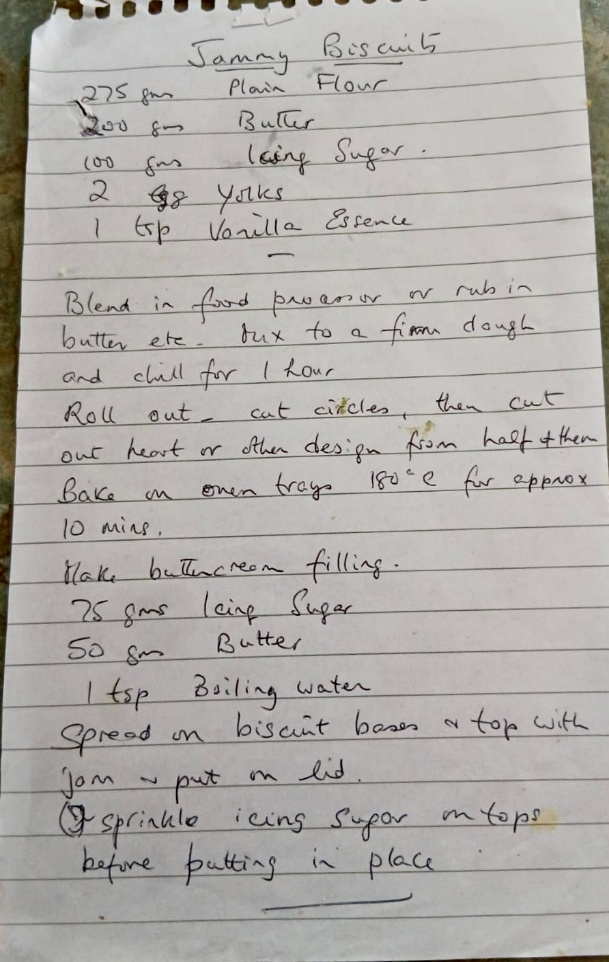 Jammy Biscuits
275 gms Plain Flour
200 gms Butter
100 gms Icing Sugar.
2 egg yolks
1 tsp Vanilla Essence
Blend in food processor or rub in
butter etc. Mix to a firm dough
and chill for 1 hour
Roll out - cut circles, then cut
out heart or other design from half of them
Bake on oven trays 180°C for approx
10 mins.
Make buttercream filling.
75 gms Icing Sugar
50 gms Butter
1 tsp Boiling water
Spread on biscuit bases & top with
jam & put on lid.
(I sprinkle icing sugar on tops
before putting in place